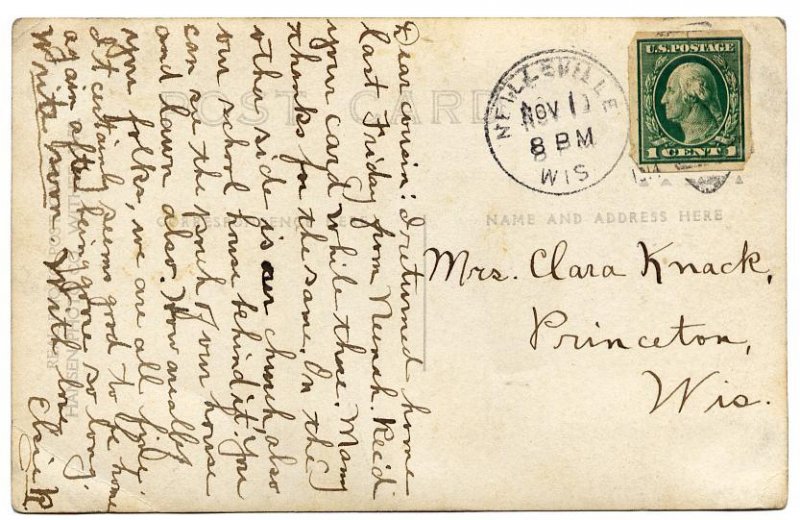 POST CARD
CORRESPONDENCE HERE
NAME AND ADDRESS HERE
NEILLSVILLE
NOV 1
8 PM
WIS
U.S. POSTAGE
1 CENT 1
Mrs. Clara Knack,
Princeton,
Wis.
Dear cousin: I returned home
last Friday from Neenah. Rec'd
your card while there. Many
thanks for the same. On the
other side is our church, also
our school house behind it. You
can see the porch of our house
and lawn also. How are all
you folks, we are all fine.
It certainly seems good to be home
again after being gone so long.
Write soon. With love,
Elsie K.